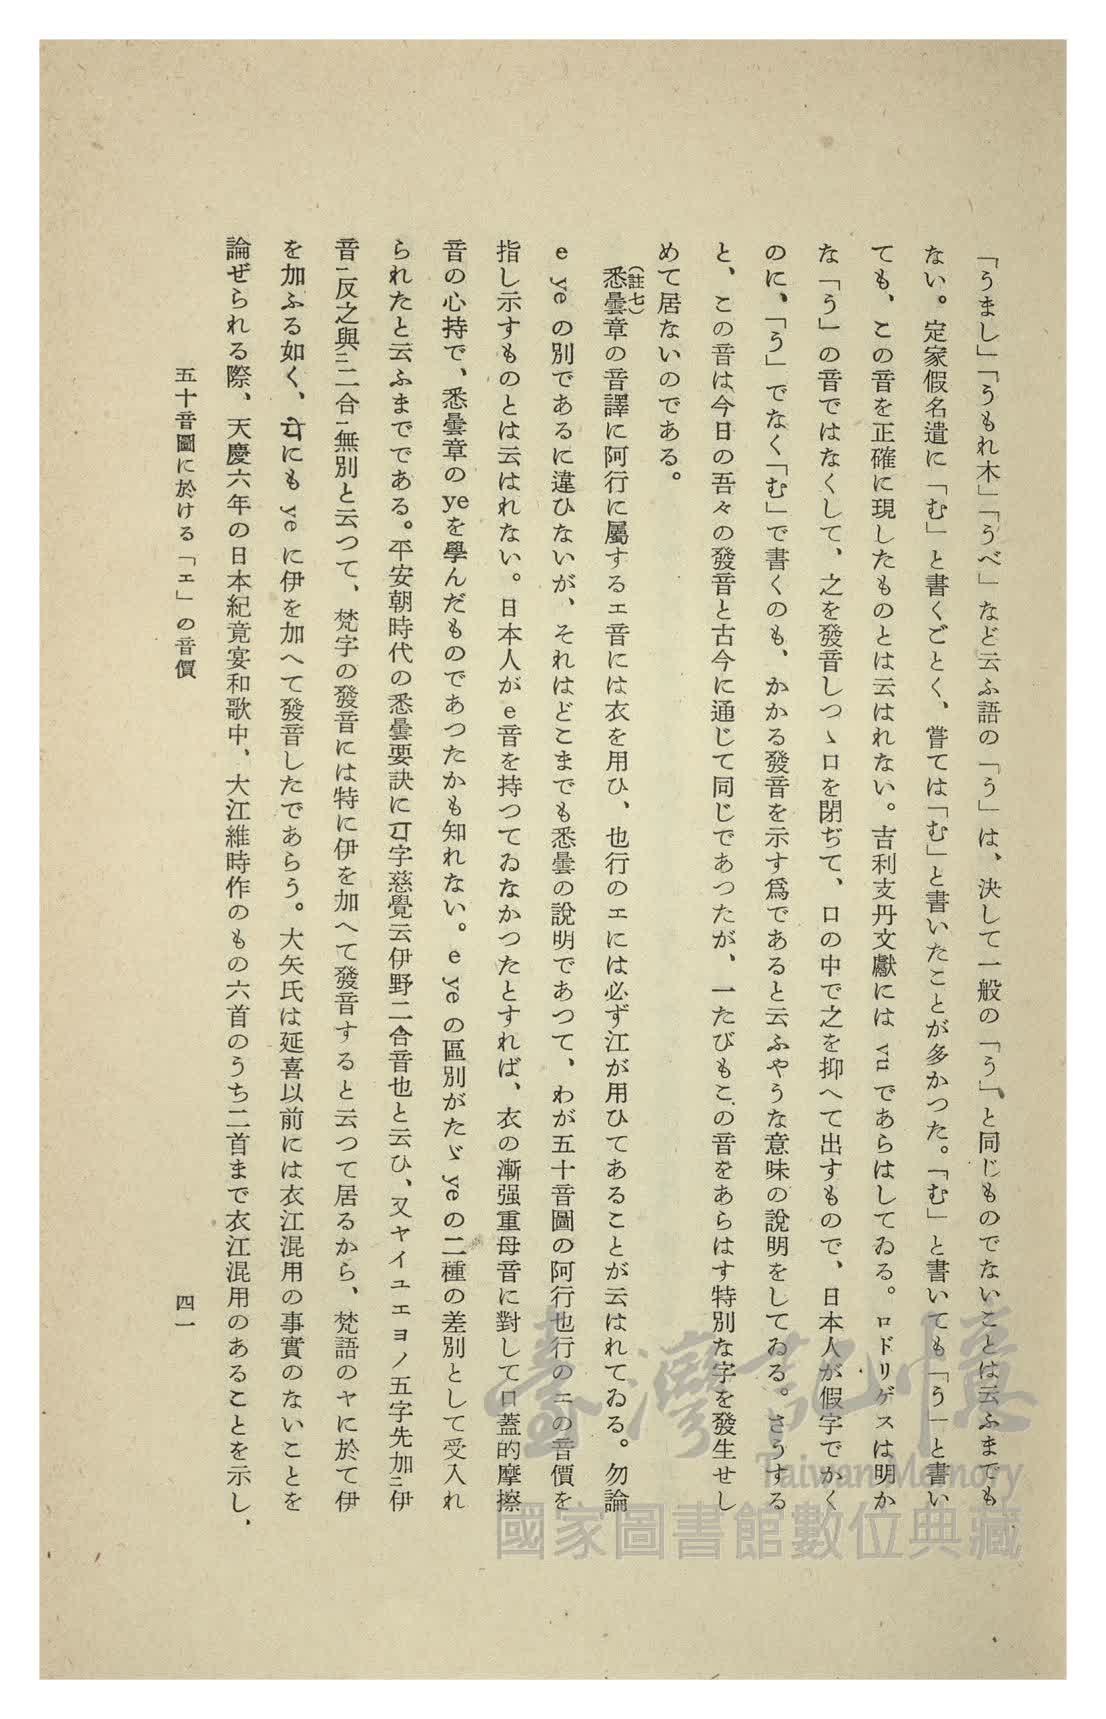 「うまし」「うもれ木」「うべ」など云ふ語の「う」は、決して一般の「う」と同じものでないことは云ふまでも
ない。定家假名遣に「む」と書くごとく、嘗ては「む」と書いたことが多かつた。「む」と書いても「う」と書い
ても、この音を正確に現したものとは云はれない。吉利支丹文獻には vu であらはしてゐる。ロドリゲスは明か
な「う」の音ではなくして、之を發音しつゝ口を閉ぢて、口の中で之を抑へて出すもので、日本人が假字でかく
のに、「う」でなく「む」で書くのも、かかる發音を示す爲であると云ふやうな意味の說明をしてゐる。さうする
と、この音は今日の吾々の發音と古今に通じて同じであつたが、一たびもこの音をあらはす特別な字を發生せし
めて居ないのである。
(註七)
悉曇章の音譯に阿行に屬するエ音には衣を用ひ、也行のエには必ず江が用ひてあることが云はれてゐる。勿論
e ye の別であるに違ひないが、それはどこまでも悉曇の說明であつて、わが五十音圖の阿行也行のエの音價を
指し示すものとは云はれない。日本人が e 音を持つてゐなかつたとすれば、衣の漸强重母音に對して口蓋的摩擦
音の心持で、悉曇章の ye を學んだものであつたかも知れない。e ye の區別がたゞ ye の二種の差別として受入れ
られたと云ふまでである。平安朝時代の悉曇要訣に字慈覺云伊野二合音也と云ひ、又ヤイユエヨノ五字先加ニ伊
音ニ反之與ニ二合ニ無別と云つて、梵字の發音には特に伊を加へて發音すると云つて居るから、梵語のヤに於て伊
を加ふる如く、にも ye に伊を加へて發音したであらう。大矢氏は延喜以前には衣江混用の事實のないことを
論ぜられる際、天慶六年の日本紀竟宴和歌中、大江維時作のもの六首のうち二首まで衣江混用のあることを示し、
五十音圖に於ける「エ」の音價
四一
臺灣記憶
Taiwan Memory
國家圖書館數位典藏